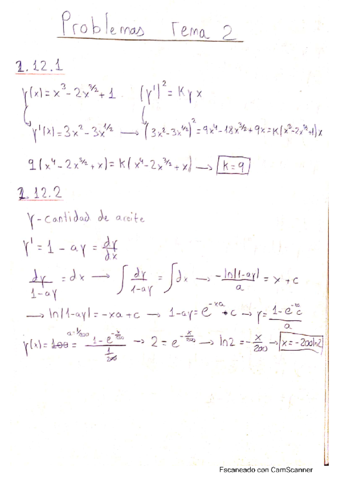 Problemas Tema 2
1.12.1
y(x)=x³-2x^{3/2}+1 (y')²=Kyx
y'(x)=3x²-3x^{1/2} → (3x²-3x^{1/2})²=9x⁴-18x^{5/2}+9x=K(x³-2x^{3/2}+1)x
9(x⁴-2x^{5/2}+x)=K(x⁴-2x^{5/2}+x) → K=9
1.12.2
y-cantidad de aceite
y'=1-ay=dy/dx
dy/1-ay=dx → ∫dy/1-ay=∫dx → -ln|1-ay|/a=x+c
→ ln|1-ay|=-xa+c → 1-ay=e^{-xa}·c → y=
→ 2=e^{-x/200} → ln2=-x/200 → x=-200ln2
Escaneado con CamScanner